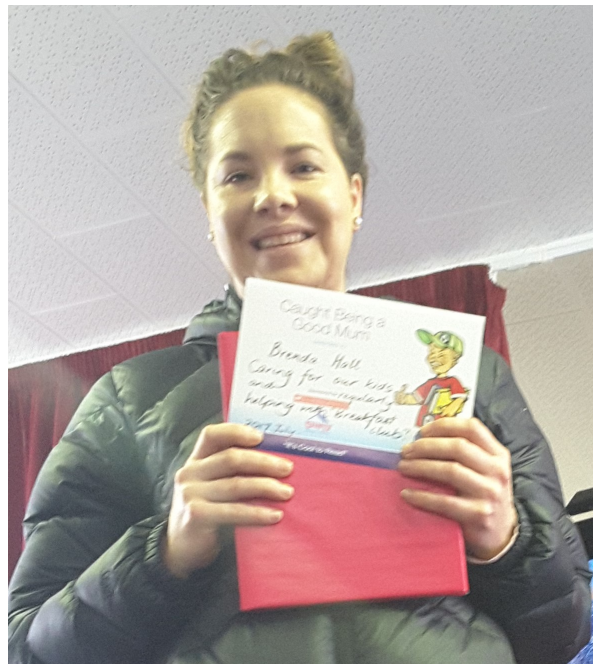 Caught Being a
Good Mum
Brenda Hall
Caring for our kids
and regularly
helping with Breakfast
club!
2017 July
"It's Cool to Read"